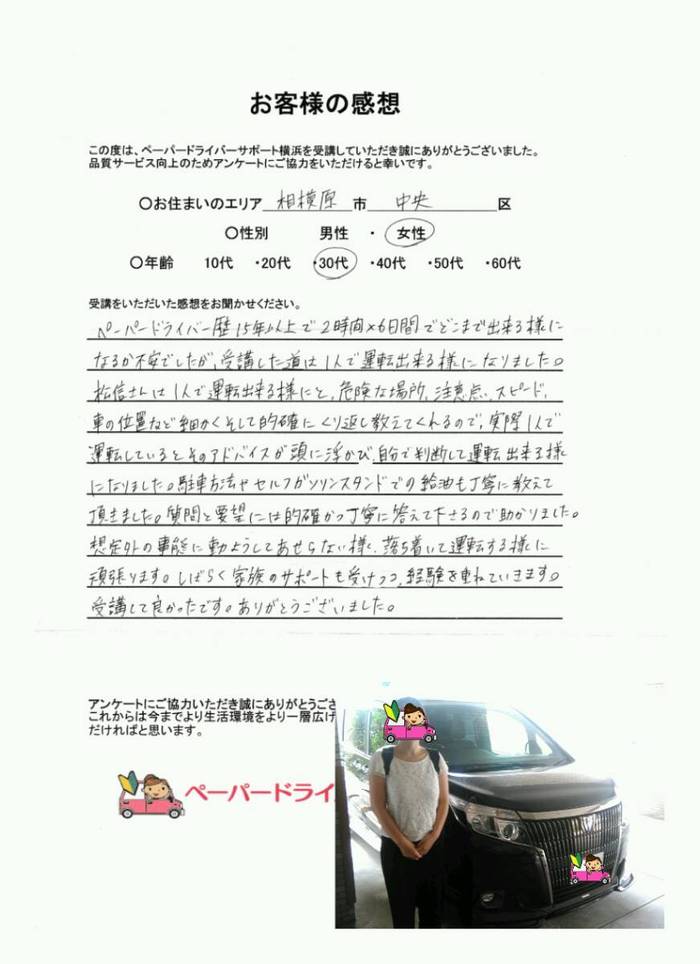 お客様の感想
この度は、ペーパードライバーサポート横浜を受講していただき誠にありがとうございました。
品質サービス向上のためアンケートにご協力をいただけると幸いです。
〇お住まいのエリア 相模原 市 中央 区
〇性別 男性 ・ 女性
〇年齢 10代 ・20代 ・30代 ・40代 ・50代 ・60代
受講をいただいた感想をお聞かせください。
ペーパードライバー歴15年以上で2時間×6日間でどこまで出来る様に
なるか不安でしたが、受講した道は1人で運転出来る様になりました。
松信さんは1人で運転出来る様にと、危険な場所、注意点、スピード、
車の位置など細かくそして的確にくり返し教えてくれるので、実際1人で
運転しているとそのアドバイスが頭に浮かび、自分で判断して運転出来る様
になりました。駐車方法やセルフガソリンスタンドでの給油も丁寧に教えて
頂きました。質問と要望には的確かつ丁寧に答えて下さるので助かりました。
想定外の事態に動ようしてあせらない様に、落ち着いて運転する様に
頑張ります。しばらく家族のサポートも受けつつ、経験を重ねていきます。
受講して良かったです。ありがとうございました。
アンケートにご協力いただき誠にありがとうござ
これからは今までより生活環境をより一層広げ
だければと思います。
ペーパードライ